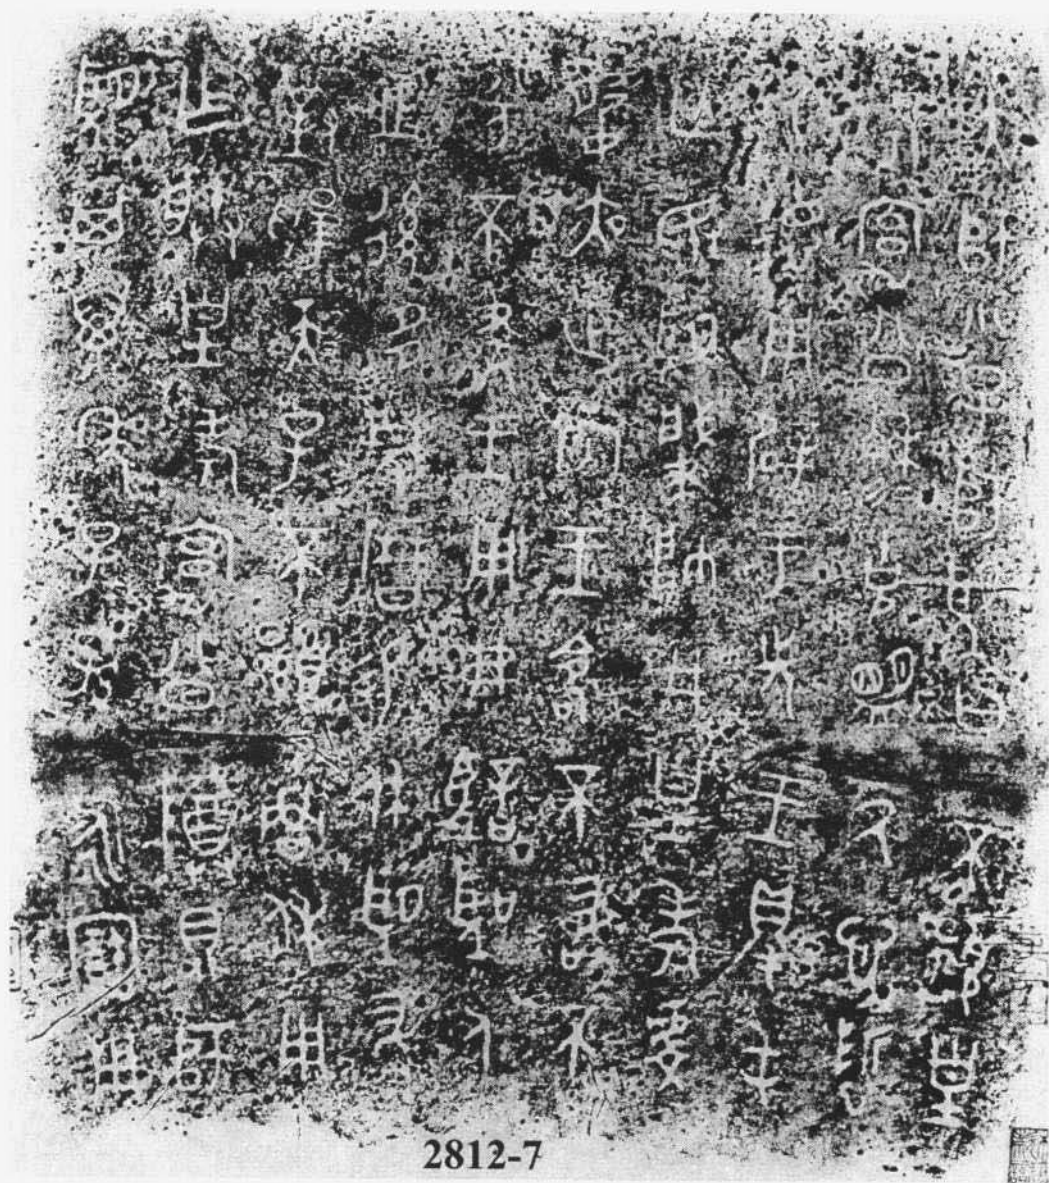 大師小子師望曰不顯皇
考宄公穆穆克盟氒心悊
氒德用辟于先王得屯
亡敃望肇帥井皇考虔
夙夜出內王命不敢不
不王用弗忘聖人
之後多蔑曆易休望敢
對揚天子不顯魯休用
乍朕皇考宄公尊鼎師
望其萬年子子孫孫永寶用
2812-7